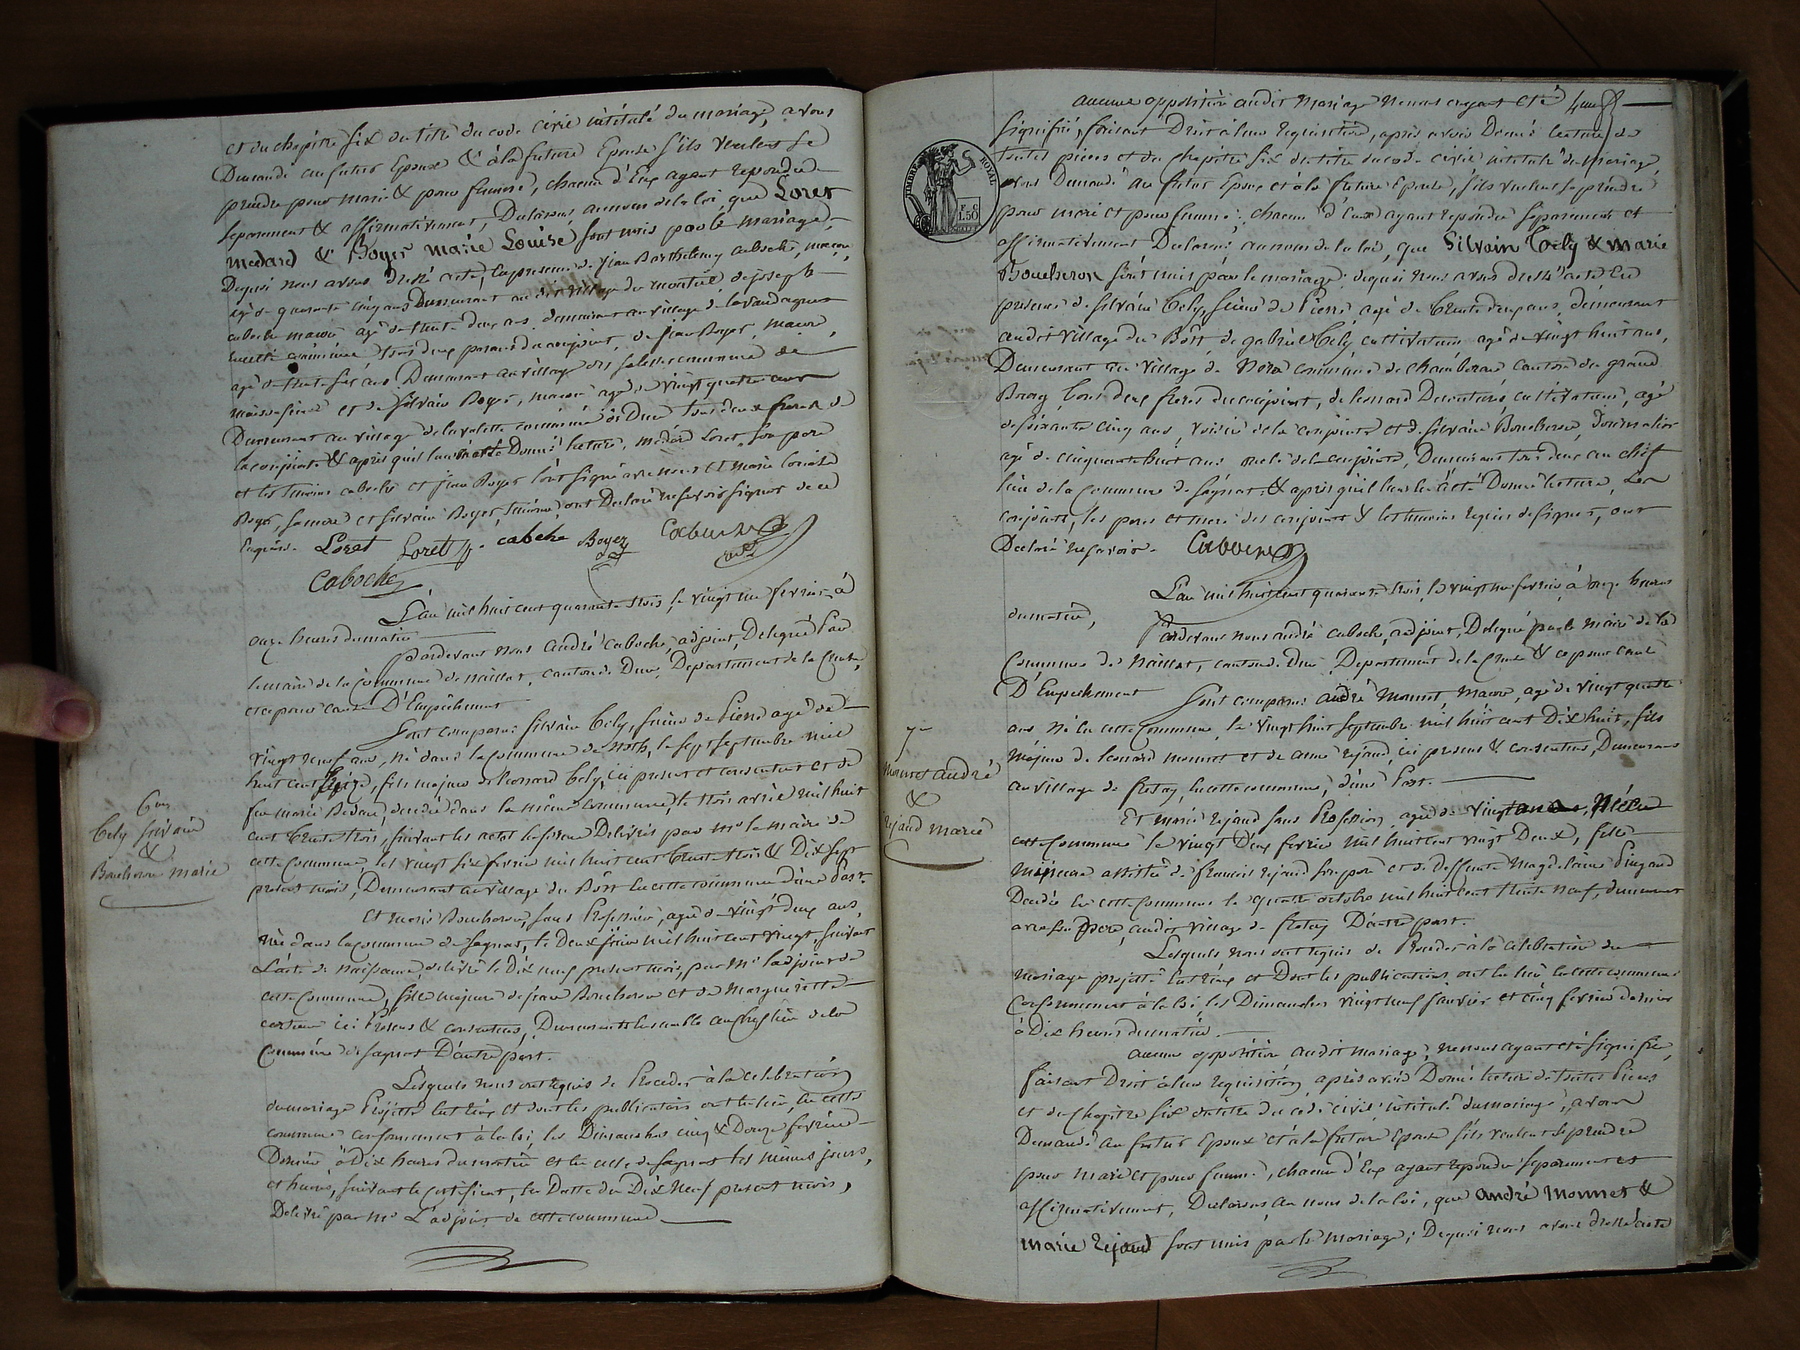 et du chapitre six du titre du code civil intitulé du mariage, avons
Demandé au futur Epoux & à la future Epouse s'ils veulent se
prendre pour mari & pour femme, chacun d'Eux ayant repondu
separement & affirmativement, Declarons au nom de la loi, que Loret
medard & Boyer Marie Louise sont unis par le mariage.
Dequoi nous avons dressé acte, En presence de jean Barthelemy caboche, maçon,
agé de quarante cinq ans Demeurant au village du monteil, de joseph
caboche maçon agé de trente deux ans demeurant au village de
tous deux parens du conjoint, de jean Boyer, maçon,
agé de trente six ans Demeurant au village des commune de
et de Silvain Boyer, maçon agé de vingt quatre ans
Demeurant au village de lavalette commune de Dun tous deux freres de
la conjointe & après qu'il leur été Donné lecture, médard Loret, son pere
et les temoins caboche et jean Boyer l'ont signé avec nous et marie louise
Boyer, sa mere et silvain Boyer, temoin, ont Declaré ne savoir signer de ce
Enquis. Loret Loret caboche Boyer
Caboche
L'an mil huit cent quarante trois, le vingt un fevrier à
onze heures du matin
Pardevant nous André caboche, adjoint, Delegué Par
le maire de la Commune de naillat, canton de Dun, Departement de la Creuse,
et ce pour cause D'Empêchement
Sont comparus Silvain Cely, fils de agé de
vingt neuf ans, né dans la commune de Noth, le sept septembre mil
huit cent, fils majeur de Leonard Cely, ici present et consentant et de
feu marie, decedée dans la même commune, le trois avril mil huit
cent trente trois, suivant les actes Delivrés par Mr le maire de
cette commune, les vingt six fevrier mil huit cent trente trois & Dix sept
present mois, Demeurant au village du Bost En cette commune d'une Part.
6me
Cely Silvain
&
Boucheron marie
Et marie Boucheron, sans Profession, agée de vingt deux ans,
née dans la commune de Sagnat, le Deux juin mil huit cent vingt, suivant
L'acte de naissance, delivré le Dix neuf present mois, par Mr l'adjoint de
cette Commune, fille majeure de jean Boucheron et de Marguerite
ici Presens & consentans, Demeurant Ensemble au chef lieu de la
Commune de Sagnat D'autre part.
Lesquels nous ont requis de Proceder à la celebration
du mariage Projetté Entr'eux et dont les publications ont eu lieu, En cette
commune conformement à la loi, les Dimanches cinq & Douze fevrier
Dernier, à Dix heures du matin et En celle de Sagnat les mêmes jours,
et heures, suivant le certificat, En Datte du Dix Neuf present mois,
Delivré par Mr L'adjoint de cette commune
aucune opposition audit Mariage ne nous ayant été
signifiée, faisant Droit à leur requisition, après avoir Donné lecture de
toutes pieces et du chapitre six du titre du code civil intitulé du mariage,
avons Demandé au futur Epoux et à la future Epouse, s'ils veulent se prendre
pour mari et pour femme; chacun d'Eux ayant repondu separement et
affirmativement Declarons au nom de la loi, que Silvain Cely & marie
Boucheron sont unis par le mariage; dequoi nous avons dressé acte En
presence de silvain Cely, agé de trente deux ans, demeurant
audit village du Bost de gabriel Cely cultivateur agé de vingt huit ans,
Demeurant au village de commune de chamborand canton du grand
Bourg, tous deux freres du conjoint, de leonard cultivateur, agé
de soixante cinq ans, voisin de la conjointe et de silvain Boucheron, Journalier
agé de cinquante huit ans oncle de la conjointe, Demeurant tous deux au chef
lieu de la Commune de Sagnat & après qu'il leur En a été Donné lecture, Les
conjoints, les peres et mere des conjoints & les temoins requis de signer, ont
Declaré ne savoir.
TIMBRE ROYAL
F. C.
1.50
L'an mil huit cent quarante trois, le vingt un fevrier à onze heures
du matin,
Pardevant nous andré caboche, adjoint, Delegué par le maire de la
Commune de Naillat, canton de Dun Departement de la Creuse & ce pour cause
D'Empechement
Sont comparus andré Monnet, Maçon, agé de vingt quatre
ans né En cette Commune, le vingt huit septembre mil huit cent Dix huit, fils
majeur de leonard monnet et de anne rejaud, ici presens & consentans, Demeurant
au village de, En cette commune, d'une Part.
7me
Monnet andré
&
rejaud marie
Et marie rejaud sans Profession, agée de vingt ans, Née En
cette Commune le vingt Deux fevrier mil huit cent vingt Deux, fille
mineure assistée de françois rejaud son pere et de deffunte Magdelaine Pingaud
Decedée En cette Commune le quatre octobre mil huit cent trente neuf, demeurant
avec son Pere, audit village de D'autre part.
Lesquels nous ont requis de Proceder à la celebration du
mariage projetté Entr'eux et Dont les publications ont eu lieu En cette commune
Conformement à la loi, les Dimanches vingt neuf janvier et cinq fevrier dernier
à Dix heures du matin.
aucune opposition audit mariage, ne nous ayant été signifiée,
faisant Droit à leur requisition, après avoir Donné lecture de toutes Pieces
et du Chapitre six du titre du code civil intitulé du mariage, avons
Demandé au futur Epoux et à la future Epouse s'ils veulent se prendre
pour mari et pour femme, chacun d'Eux ayant repondu separement et
affirmativement, Declarons au nom de la loi, que andré Monnet &
marie rejaud sont unis par le mariage; Dequoi nous avons dressé acte